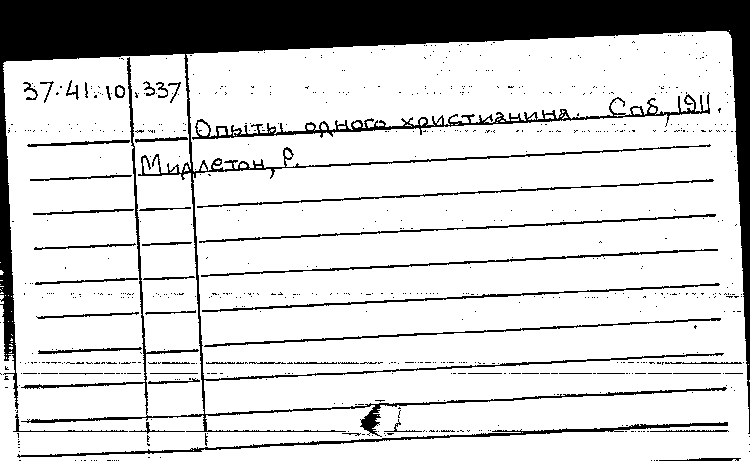 37.41.10.337
Опыты одного христианина. Спб., 1911.
Мидлетон, Р.